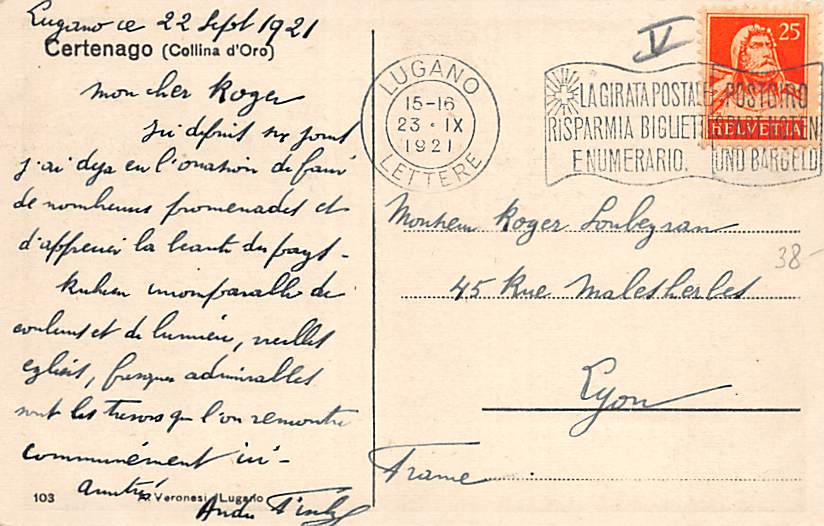 Lugano ce 22 Sept 1921
Certenago (Collina d'Oro)
Mon cher Roger
depuis six jours
j'ai deja eu l'occasion de faire
de nombreuses promenades et
d'apprecier la beauté du pays -
incomparable de
couleurs et de lumière, vieilles
eglises, fresques admirables
sont les tresors que l'on rencontre
communément ici -
amitiés
André
103
A. Veronesi, Lugano
LUGANO
15-16
23 · IX
1921
LETTERE
LA GIRATA POSTALE
RISPARMIA BIGLIETTI
E NUMERARIO.
POSTGIRO
SPART NOTEN
UND BARGELD
V
25
HELVETIA
Monsieur Roger Soubeyran
38-
45 Rue Malesherbes
Lyon
France